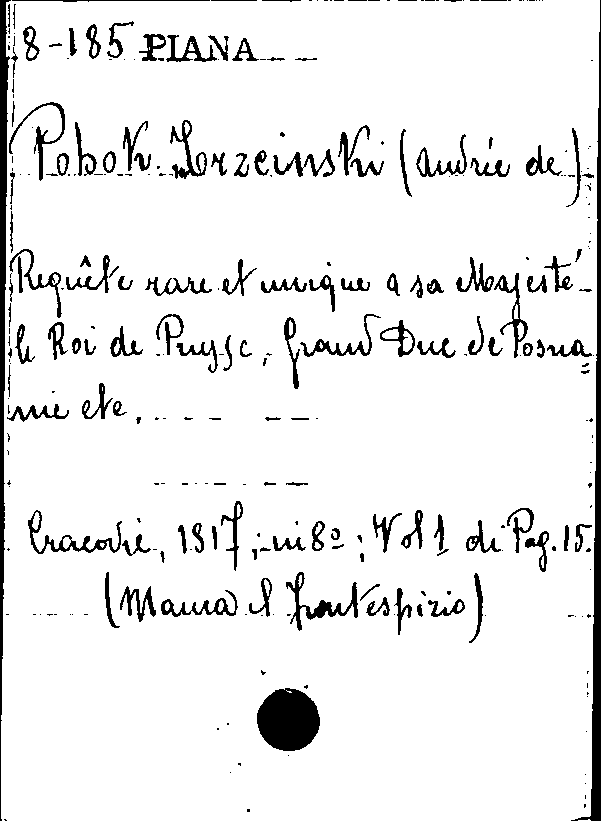 8-185 PIANA
Pobok-Izrzeinski (Andrée de)
Requête rare et unique a sa Majesté
le Roi de Prusse, Grand Duc de Posna=
nie etc.
Cracovie, 1817; in 8º; Vol 1 di Pag. 15.
(Manca il frontespizio)